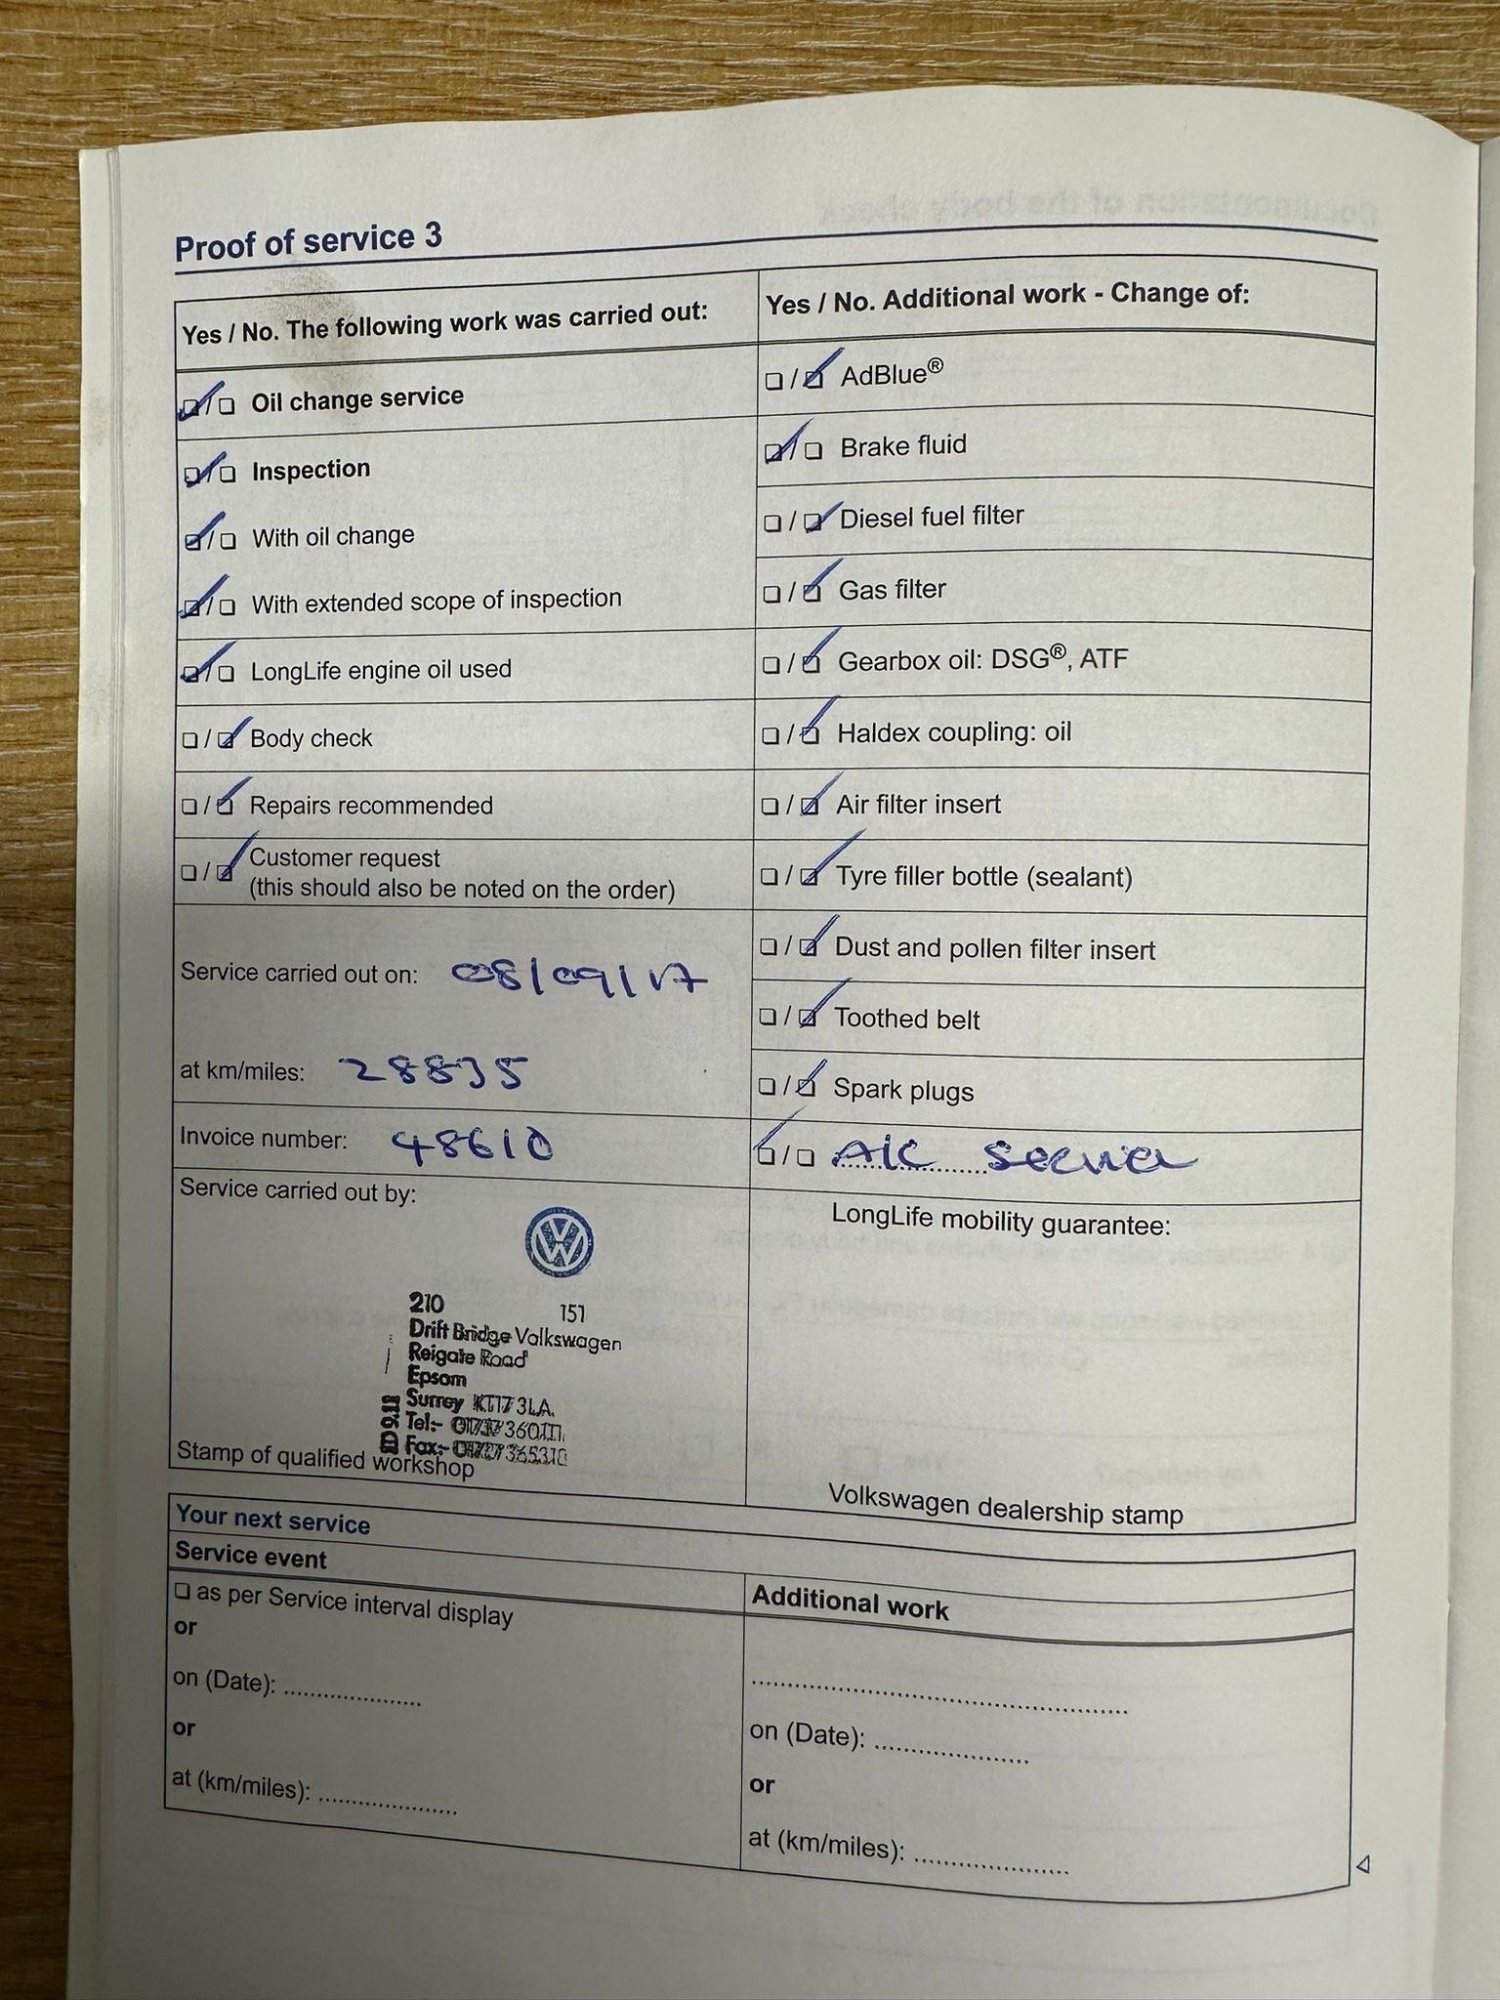 Proof of service 3
Yes / No. The following work was carried out:
☑/☐ Oil change service
☑/☐ Inspection
☑/☐ With oil change
☑/☐ With extended scope of inspection
☑/☐ LongLife engine oil used
☐/☑ Body check
☐/☑ Repairs recommended
☐/☑ Customer request
(this should also be noted on the order)
Service carried out on: 08/09/17
at km/miles: 28835
Invoice number: 48610
Service carried out by:
210 151
Drift Bridge Volkswagen
Reigate Road
Epsom
Surrey KT17 3LA.
Tel:- 01737 360111
Fax:- 365310
Stamp of qualified workshop
Yes / No. Additional work - Change of:
☐/☑ AdBlue®
☑/☐ Brake fluid
☐/☑ Diesel fuel filter
☐/☑ Gas filter
☐/☑ Gearbox oil: DSG®, ATF
☐/☑ Haldex coupling: oil
☐/☑ Air filter insert
☐/☑ Tyre filler bottle (sealant)
☐/☑ Dust and pollen filter insert
☐/☑ Toothed belt
☐/☑ Spark plugs
☑/☐ A/C Service
LongLife mobility guarantee:
Volkswagen dealership stamp
Your next service
Service event
☐ as per Service interval display
or
on (Date): ....................
or
at (km/miles): ....................
Additional work
on (Date): ....................
or
at (km/miles): ....................